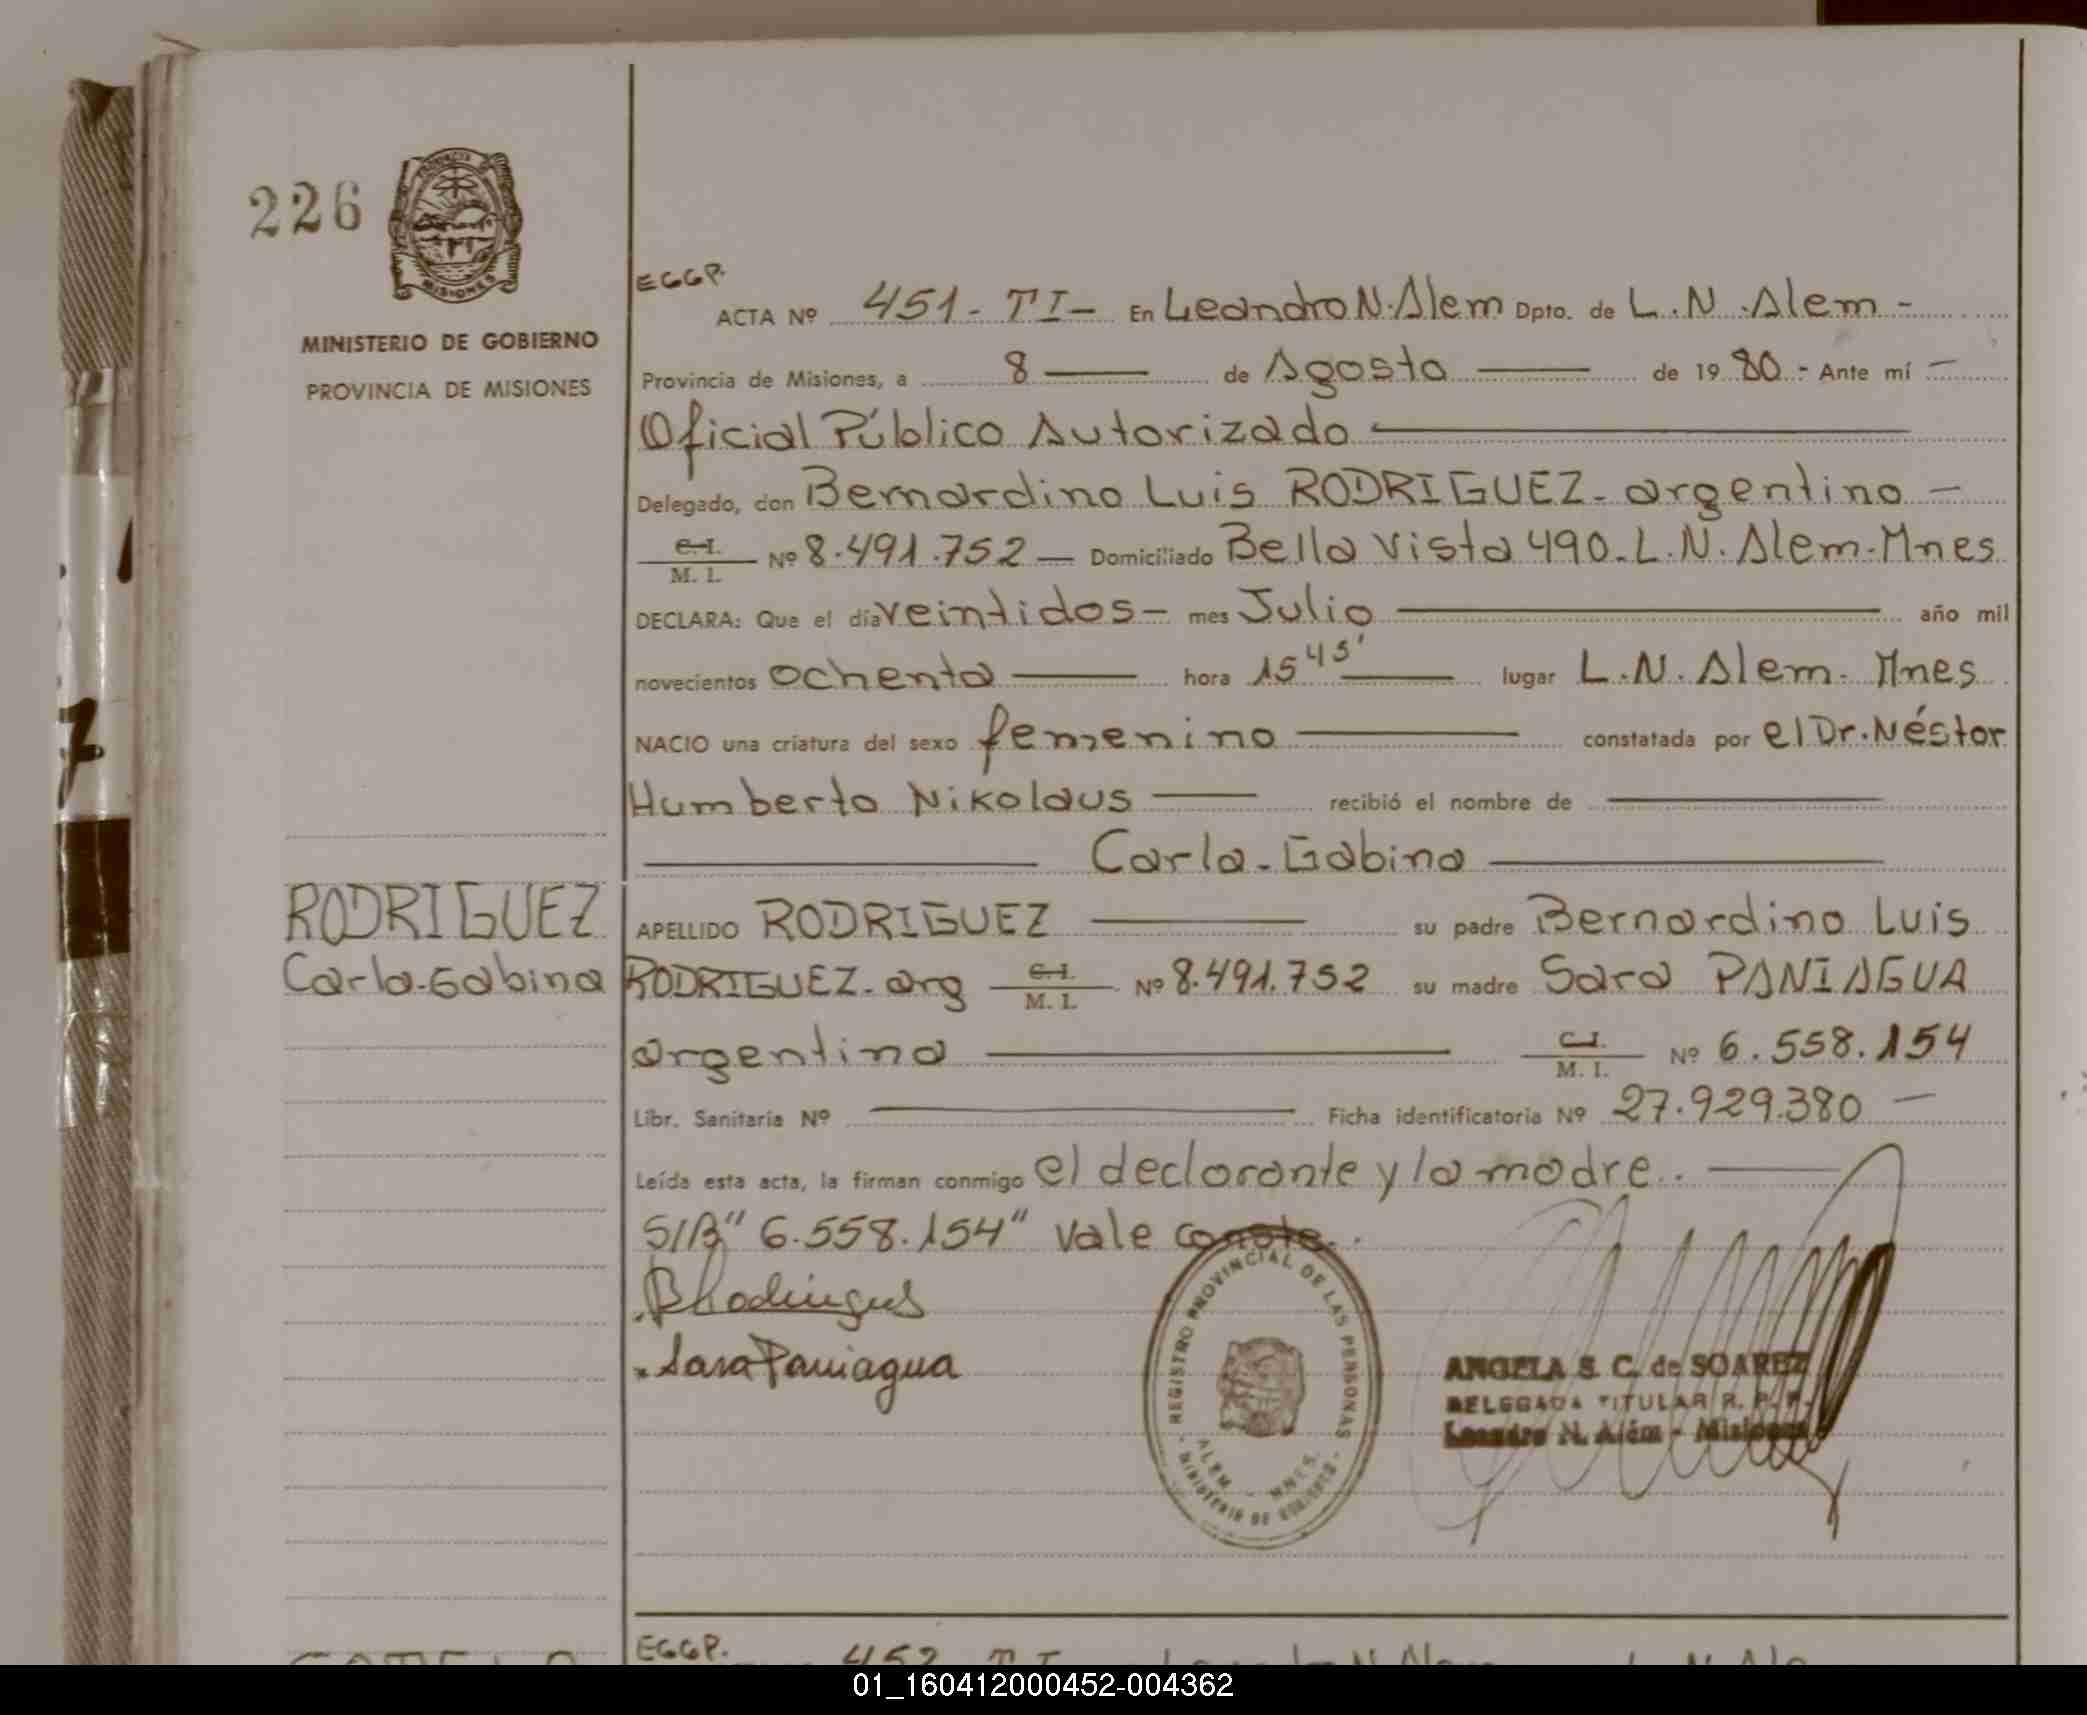 226
MINISTERIO DE GOBIERNO
PROVINCIA DE MISIONES
EGGP.
ACTA Nº 451 - TI - En Leandro N. Alem Dpto. de L. N. Alem -
Provincia de Misiones, a 8 de Agosto de 19 80 - Ante mí -
Oficial Público Autorizado
Delegado, don Bernardino Luis RODRIGUEZ - argentino -
C. I. / M. I. Nº 8.491.752 - Domiciliado Bella Vista 490 - L. N. Alem - Mnes
DECLARA: Que el día veintidos - mes Julio año mil
novecientos ochenta hora 15 45' lugar L. N. Alem - Mnes
NACIO una criatura del sexo femenino constatada por el Dr. Néstor
Humberto Nikolaus recibió el nombre de
Carla - Gabina
RODRIGUEZ
Carla - Gabina
APELLIDO RODRIGUEZ su padre Bernardino Luis
RODRIGUEZ - arg C. I. / M. I. Nº 8.491.752 su madre Sara PANIAGUA
argentina C. I. / M. I. Nº 6.558.154
Libr. Sanitaria Nº Ficha identificatoria Nº 27.929.380 -
Leída esta acta, la firman conmigo el declarante y la madre.
S/B" 6.558.154" vale conste.
BRodrigues
Sara Paniagua
REGISTRO PROVINCIAL DE LAS PERSONAS
ALEM - MNES.
MINISTERIO DE GOBIERNO
ANGELA S. C. de SOAREZ
DELEGADA TITULAR R. P. P.
Leandro N. Além - Misiones
EGGP.
452 TI
01_160412000452-004362